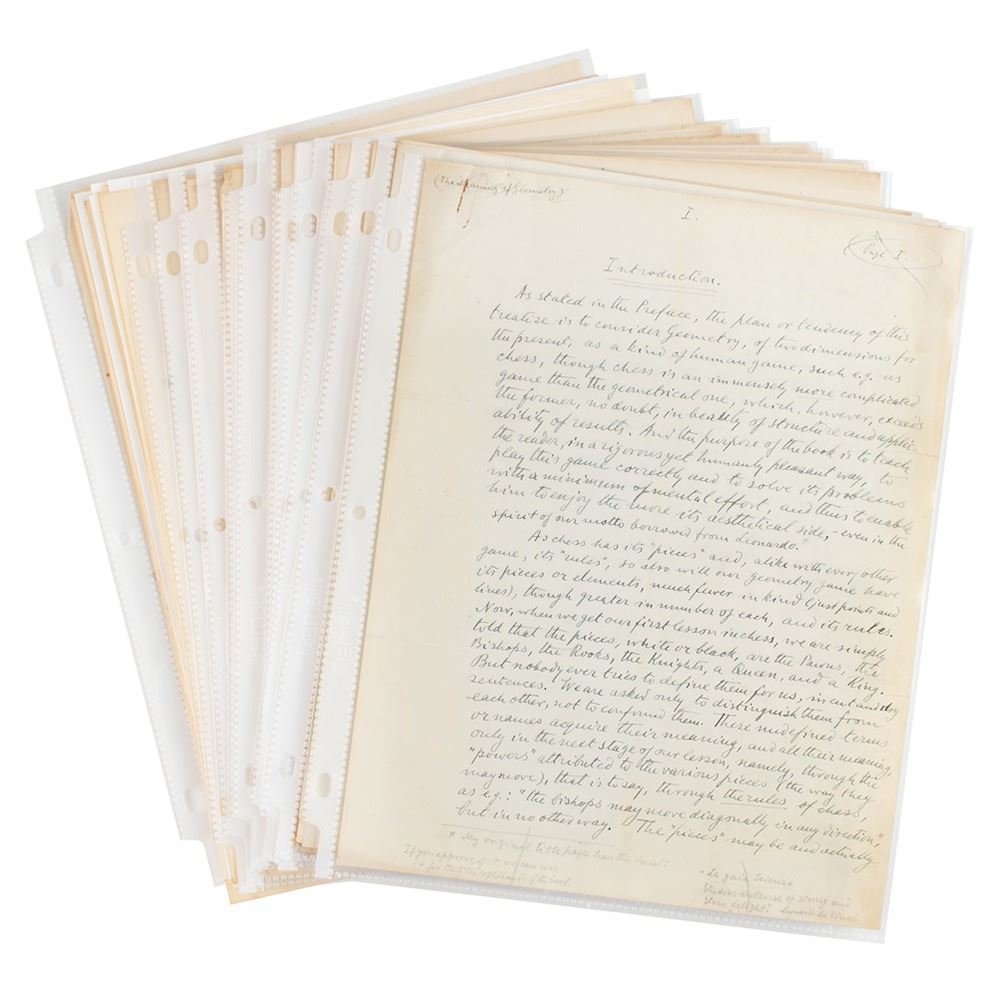 (The Meaning of Geometry)
I.
Page I
Introduction.
As stated in the Preface, the plan or tendency of this
treatise is to consider Geometry, of two dimensions for
the present, as a kind of human game, such e.g. as
chess, though chess is an immensely more complicated
game than the geometrical one, which, however, exceeds
the former, no doubt, in beauty of structure and applic-
ability of results. And the purpose of the book is to teach
the reader, in a rigorous yet humanly pleasant way, to
play this game correctly and to solve its problems
with a minimum of mental effort, and thus to enable
him to enjoy the more its aesthetical side, – even in the
spirit of our motto borrowed from Leonardo.*
As chess has its "pieces" and, alike with every other
game, its "rules", so also will our geometry game have
its pieces or elements, much fewer in kind (just points and
lines), though greater in number of each, and its rules.
Now, when we get our first lesson in chess, we are simply
told that the pieces, white or black, are the Pawns, the
Bishops, the Rooks, the Knights, a Queen, and a King.
But nobody ever tries to define them for us, in cut and dry
sentences. We are asked only to distinguish them from
each other, not to confound them. These undefined terms
or names acquire their meaning, and all their meaning,
only in the next stage of our lesson, namely, through the
"powers" attributed to the various pieces (the way they
may move), that is to say, through the rules of chess,
as e.g.: "the bishops may move diagonally in any direction,"
but in no other way. The "pieces" may be and actually
* My original title page has the
If you approve of it we can use
it for the title of the book.
* La gaia Scienza
Studies of strong and
stern delight! Leonardo da Vinci.